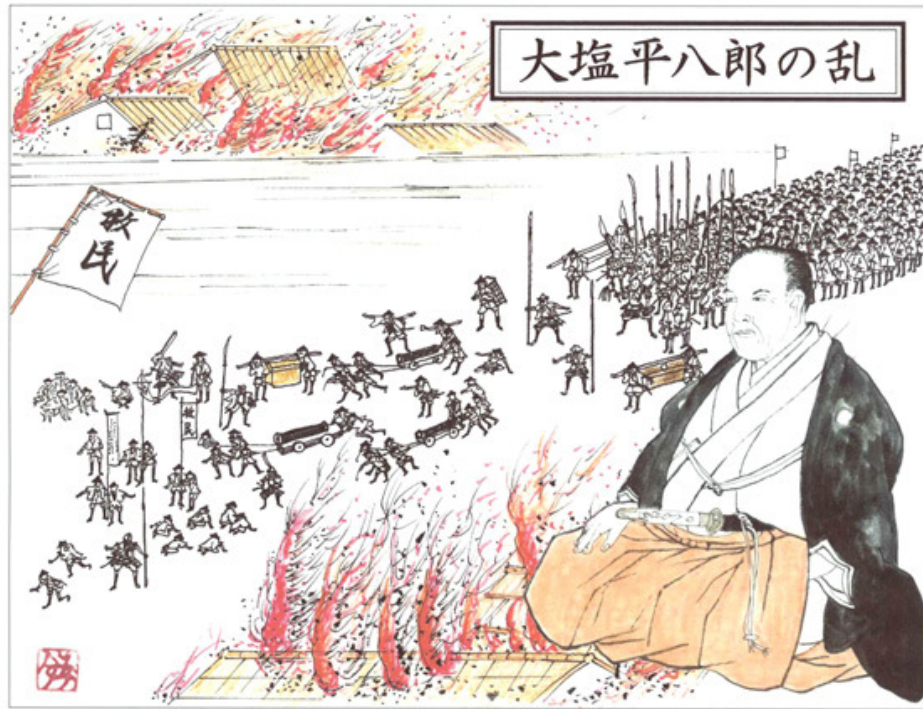 大塩平八郎の乱
救
民
救
民